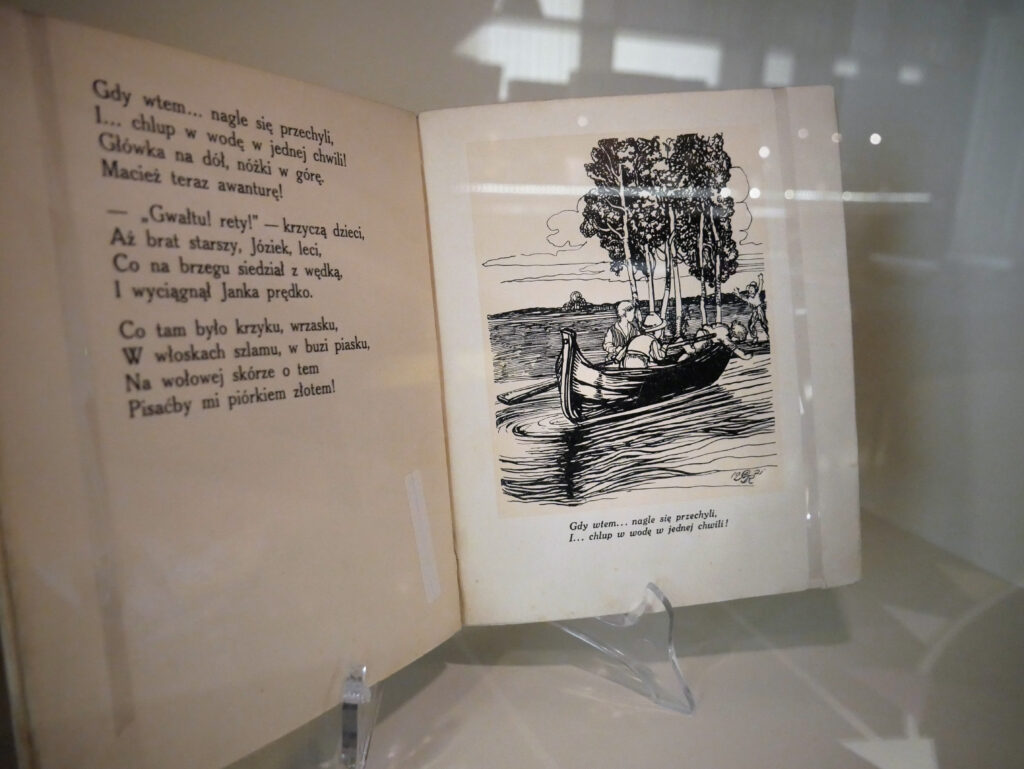 Gdy wtem... nagle się przechyli,
I... chlup w wodę w jednej chwili!
Główka na dół, nóżki w górę.
Macież teraz awanturę!
— „Gwałtu! rety!" — krzyczą dzieci,
Aż brat starszy, Józiek, leci,
Co na brzegu siedział z wędką,
I wyciągnął Janka prędko.
Co tam było krzyku, wrzasku,
W włoskach szlamu, w buzi piasku,
Na wołowej skórze o tem
Pisaćby mi piórkiem złotem!
Gdy wtem... nagle się przechyli,
I... chlup w wodę w jednej chwili!